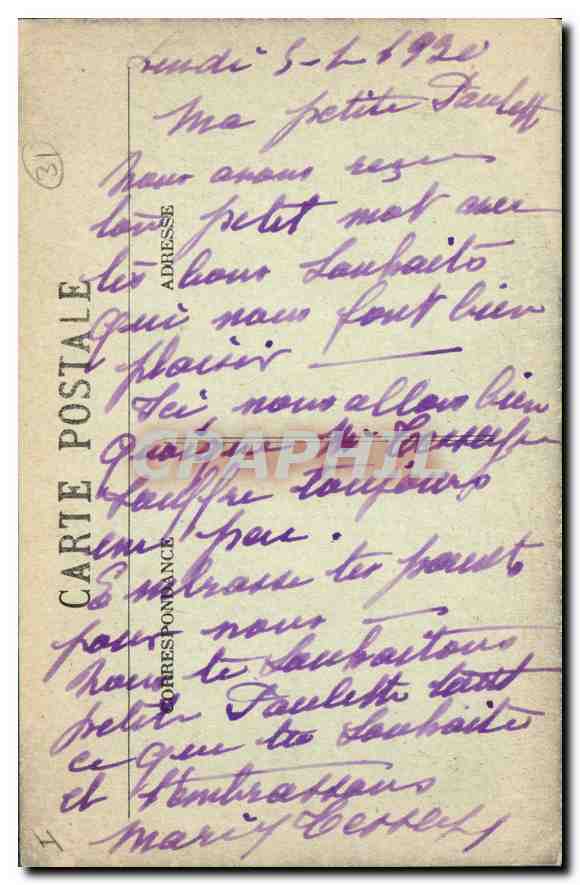 Lundi 5-1-1920
Ma petite Paulette
Nous avons reçu
ton petit mot avec
tes bons souhaits
qui nous font bien
plaisir —
Ici nous allons bien
quoique
souffre toujours
un peu.
Embrasse tes parents
pour nous —
Nous te souhaitons
petite Paulette tout
ce que tu souhaite
et t'embrassons
Marie
CARTE POSTALE
ADRESSE
CORRESPONDANCE
31
CPAPHIL